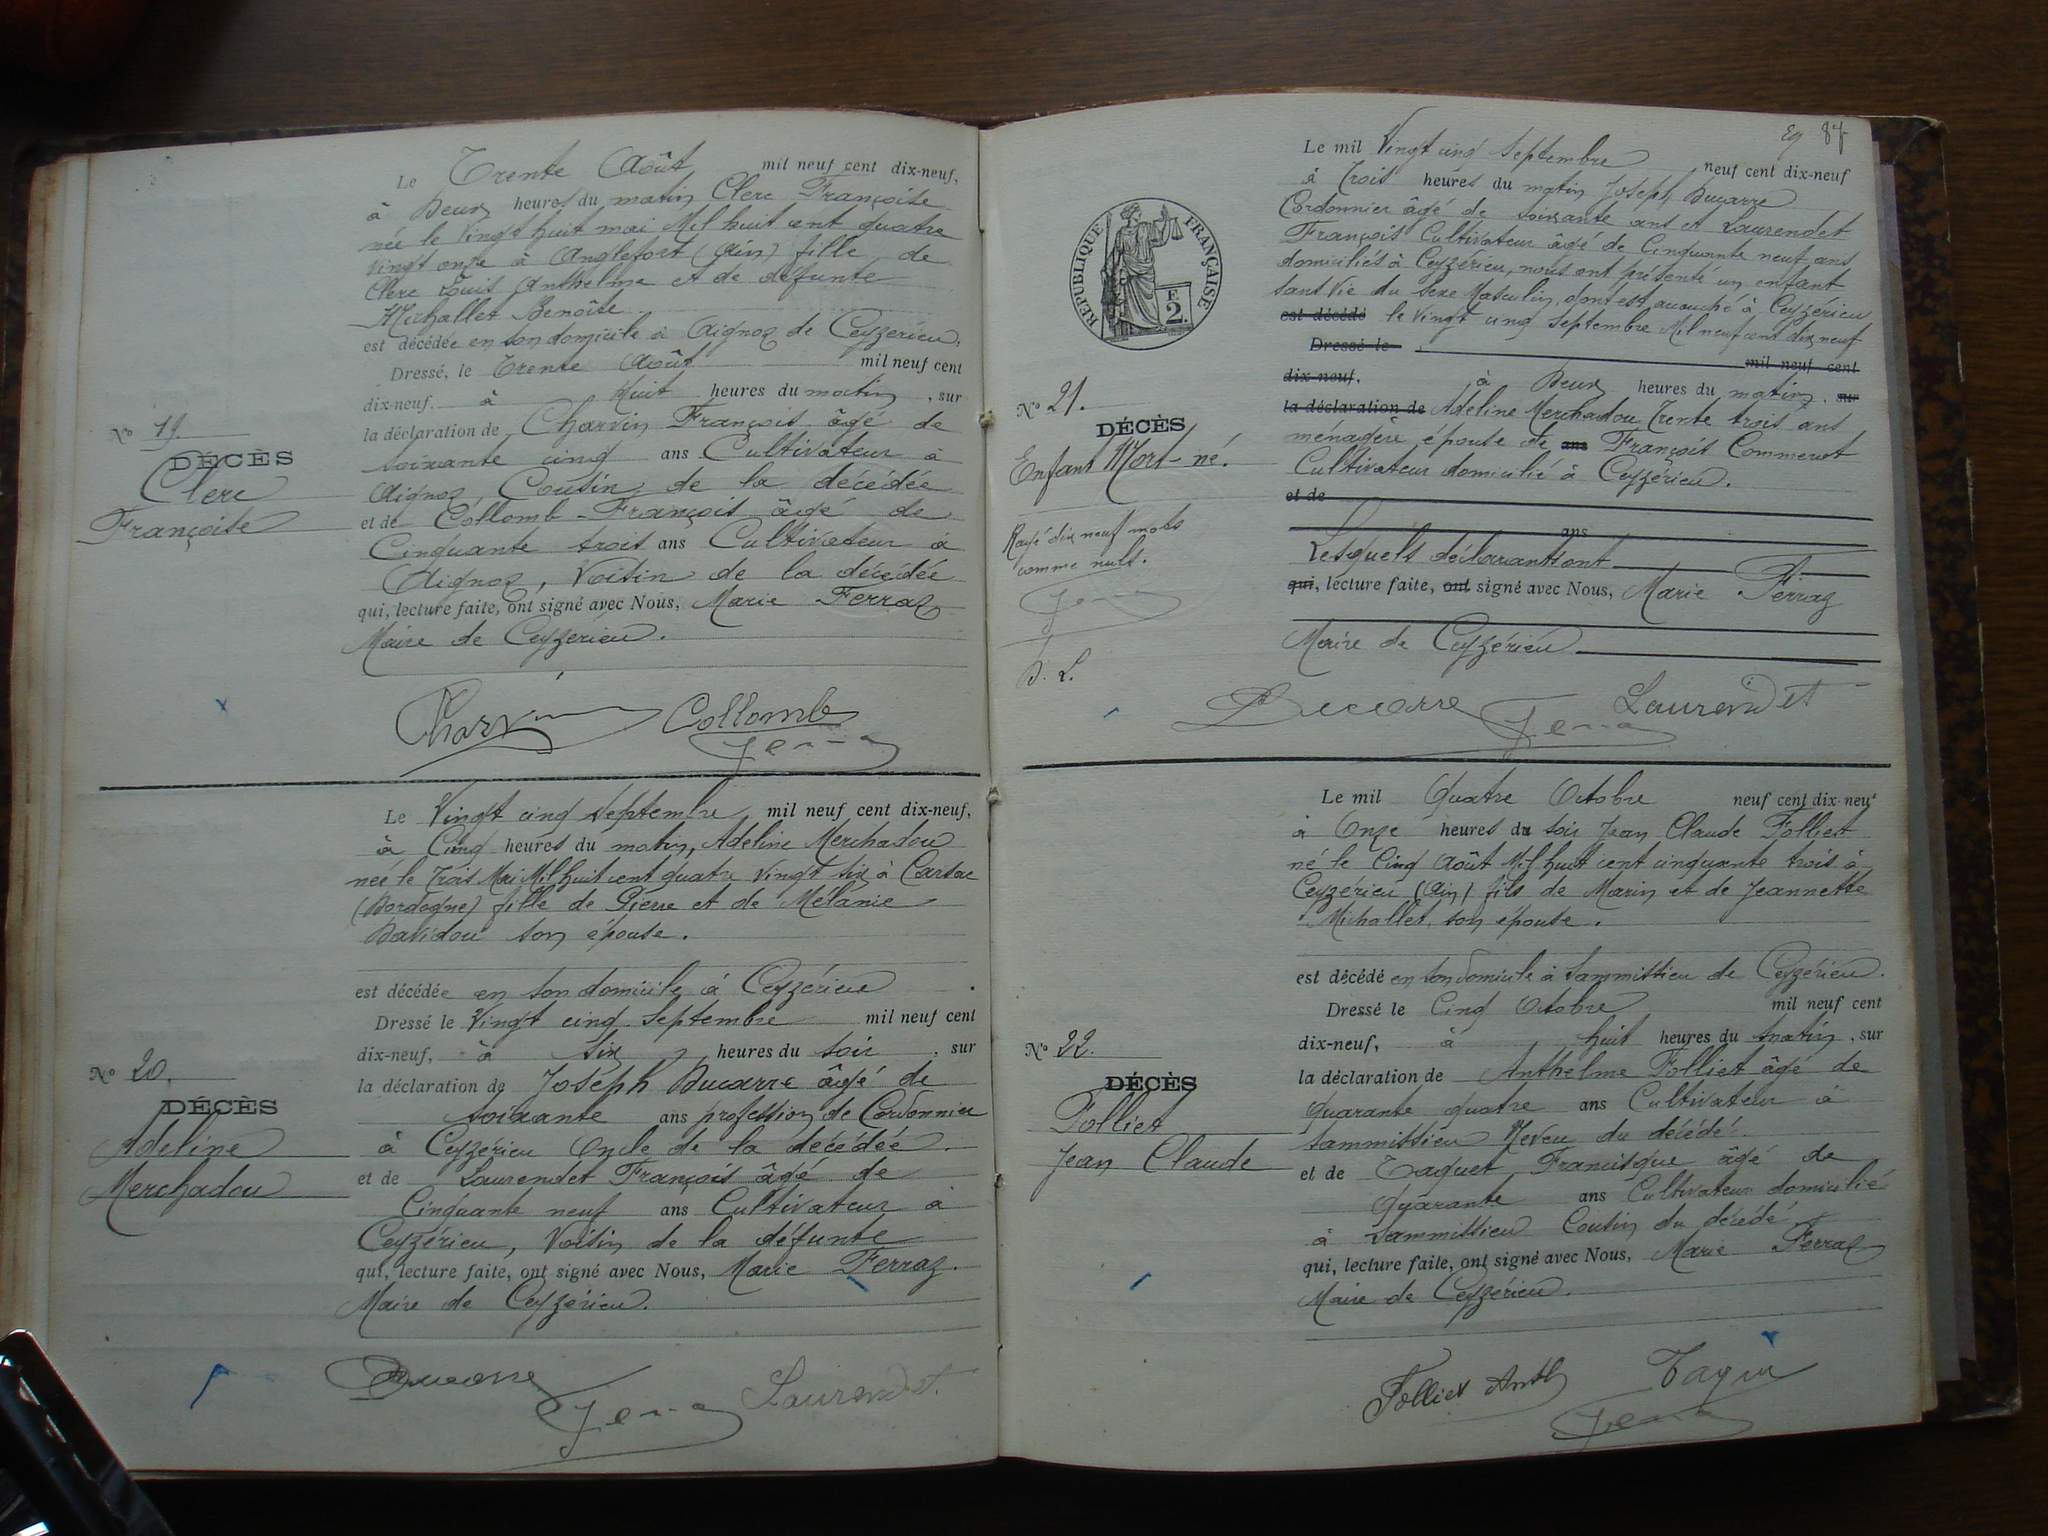 Le Trente Août mil neuf cent dix-neuf,
à Deux heures du matin Clerc Françoise
née le Vingt huit mai Mil huit cent quatre
vingt onze à Anglefort (Ain) fille de
Clerc Louis Anthelme et de défunte
Michallet Benoîte
est décédée en son domicile à Aignoz de Ceyzérieu,
Dressé, le Trente Août mil neuf cent
dix-neuf, à Huit heures du matin, sur
No 19.
DÉCÈS
Clerc
Françoise
la déclaration de Charvin François âgé de
soixante cinq ans Cultivateur à
Aignoz, Cousin de la décédée
et de Collomb François âgé de
Cinquante trois ans Cultivateur à
Aignoz, Voisin de la décédée
qui, lecture faite, ont signé avec Nous, Marie Ferraz
Maire de Ceyzérieu.
Charvin Collomb
Ferraz
Le Vingt cinq Septembre mil neuf cent dix-neuf,
à Cinq heures du matin, Adeline Merchadou
née le Trois Mai Mil huit cent quatre Vingt six à Carsac
(Dordogne) fille de Pierre et de Mélanie
Davidou son épouse.
est décédée en son domicile à Ceyzérieu
Dressé le Vingt cinq Septembre mil neuf cent
dix-neuf, à Six heures du soir, sur
No 20.
DÉCÈS
Adeline
Merchadou
la déclaration de Joseph Ducarre âgé de
soixante ans profession de Cordonnier
à Ceyzérieu Oncle de la décédée
et de Laurendet François âgé de
Cinquante neuf ans Cultivateur à
Ceyzérieu, Voisin de la défunte
qui, lecture faite, ont signé avec Nous, Marie Ferraz.
Maire de Ceyzérieu.
Ducarre Ferraz Laurendet
87
Le mil Vingt cinq Septembre neuf cent dix-neuf
à Trois heures du matin Joseph Ducarre
Cordonnier âgé de soixante ans et Laurendet
François Cultivateur âgé de Cinquante neuf ans
domiciliés à Ceyzérieu, nous ont présenté un enfant
sans Vie du sexe Masculin, dont est accouché à Ceyzérieu
est décédé le Vingt cinq Septembre Mil neuf cent dix neuf
Dressé le mil neuf cent
dix-neuf, à Deux heures du matin, sur
RÉPUBLIQUE FRANÇAISE
E
2.
No 21.
DÉCÈS
Enfant Mort-né.
Rayé dix neuf mots
comme nuls.
Ferraz
D. L.
la déclaration de Adeline Merchadou Trente trois ans
ménagère épouse de ans François Commerot
Cultivateur domicilié à Ceyzérieu.
et de
ans
Lesquels déclarants ont
qui, lecture faite, ont signé avec Nous, Marie Ferraz
Maire de Ceyzérieu
Ducarre Ferraz Laurendet
Le mil Quatre Octobre neuf cent dix-neuf
à Onze heures du soir Jean Claude Folliet
né le Cinq Août Mil huit cent cinquante trois à
Ceyzérieu (Ain) fils de Marin et de Jeannette
Michallet, son épouse.
est décédé en son domicile à Sammissieu de Ceyzérieu.
Dressé le Cinq Octobre mil neuf cent
dix-neuf, à huit heures du matin, sur
No 22.
DÉCÈS
Folliet
Jean Claude
la déclaration de Anthelme Folliet âgé de
quarante quatre ans Cultivateur à
Sammissieu Neveu du décédé
et de Taquet Francisque âgé de
quarante ans Cultivateur domicilié
à Sammissieu Cousin du décédé
qui, lecture faite, ont signé avec Nous, Marie Ferraz
Maire de Ceyzérieu.
Folliet Anth
Ferraz